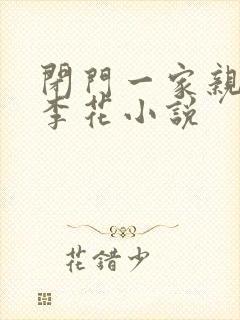 閉門一家親
李花小說
花錯少